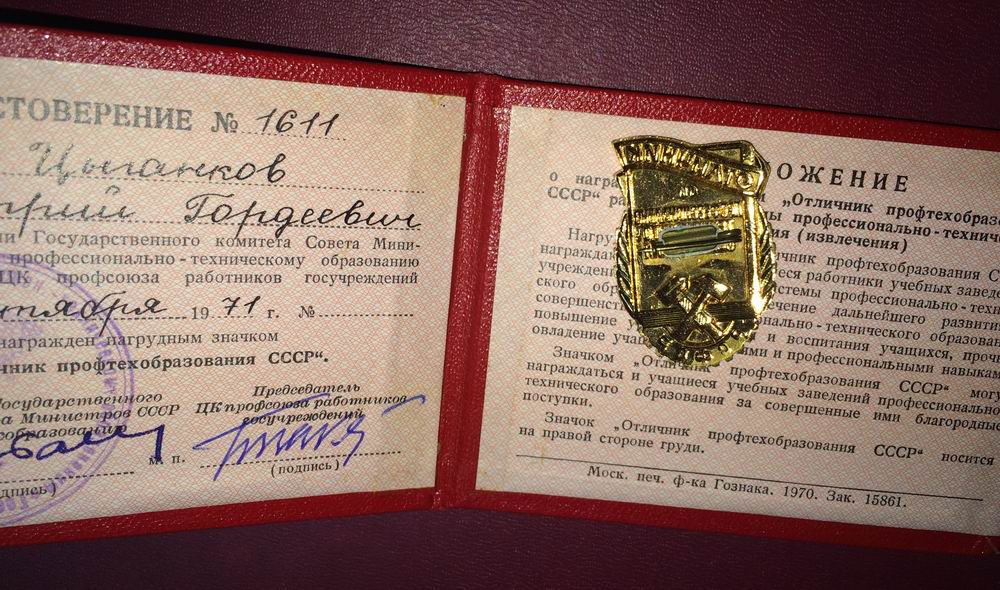 СТОВЕРЕНИЕ № 1611
Цыганков
Гордеевич
и Государственного комитета Совета Мини-
профессионально-техническому образованию
ЦК профсоюза работников госучреждений
нтября 1971 г. №
награжден нагрудным значком
чник профтехобразования СССР“.
осударственного
а Министров СССР
образованию
Председатель
ЦК профсоюза работников
госучреждений
м. п.
дпись)
(подпись)
ОЖЕНИЕ
о нагр „Отличник профтехобраз
СССР“ ра ы профессионально-технич
ия (извлечения)
Нагру чник профтехобразования С
награжда еся работники учебных завед
учрежден стемы профессионально-техн
ского обр ечение дальнейшего развити
совершенст ально-технического образован
повышение у и воспитания учащихся, проч
овладение уча ими и профессиональными навыкам
Значком „Отли профтехобразования СССР“ могу
награждаться и учащиеся учебных заведений профессионально
технического образования за совершенные ими благородные
поступки.
Значок „Отличник профтехобразования СССР“ носится
на правой стороне груди.
Моск. печ. ф-ка Гознака. 1970. Зак. 15861.